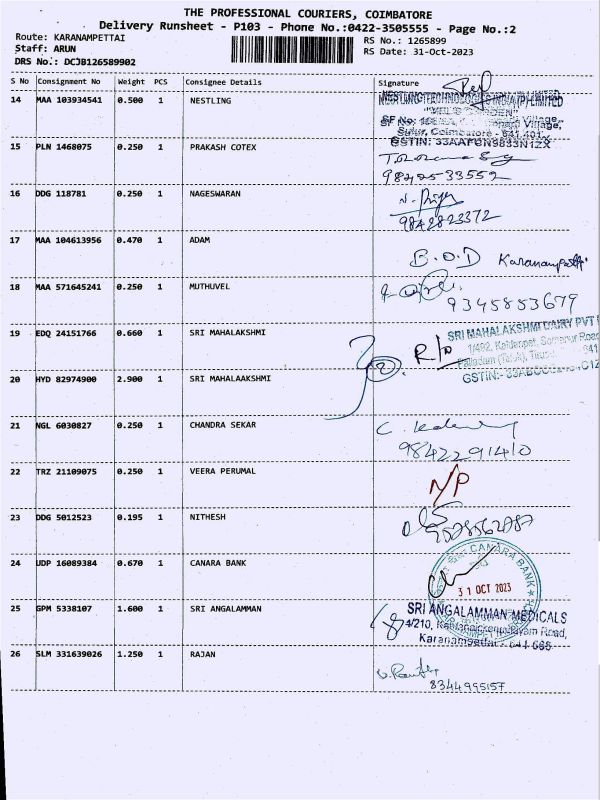 THE PROFESSIONAL COURIERS, COIMBATORE
Delivery Runsheet - P103 - Phone No.:0422-3505555 - Page No.:2
Route: KARANAMPETTAI RS No.: 1265899
Staff: ARUN RS Date: 31-Oct-2023
DRS No.: DCJB126589902
S No Consignment No Weight PCS Consignee Details Signature
14 MAA 103934541 0.500 1 NESTLING
NESTLING TECHNOLOGIES INDIA (P) LIMITED
SF No: Village,
Sulur, Coimbatore - 641 401
GSTIN: 33AAFCN9833N1ZX
15 PLN 1468075 0.250 1 PRAKASH COTEX
9842533552
16 DDG 118781 0.250 1 NAGESWARAN
9842823372
17 MAA 104613956 0.470 1 ADAM
B.O.D Karanampatti
18 MAA 571645241 0.250 1 MUTHUVEL
9345853679
19 EDQ 24151766 0.660 1 SRI MAHALAKSHMI
SRI MAHALAKSHMI DAIRY PVT
Palladam (Taluk),
GSTIN:-
20 HYD 82974900 2.900 1 SRI MAHALAAKSHMI
21 NGL 6030827 0.250 1 CHANDRA SEKAR
9842291410
22 TRZ 21109075 0.250 1 VEERA PERUMAL
N/P
23 DDG 5012523 0.195 1 NITHESH
24 UDP 16089384 0.670 1 CANARA BANK
CANARA BANK
31 OCT 2023
25 GPM 5338107 1.600 1 SRI ANGALAMMAN
SRI ANGALAMMAN MEDICALS
4/210, Road,
Karanampettai
26 SLM 331639026 1.250 1 RAJAN
8344995157